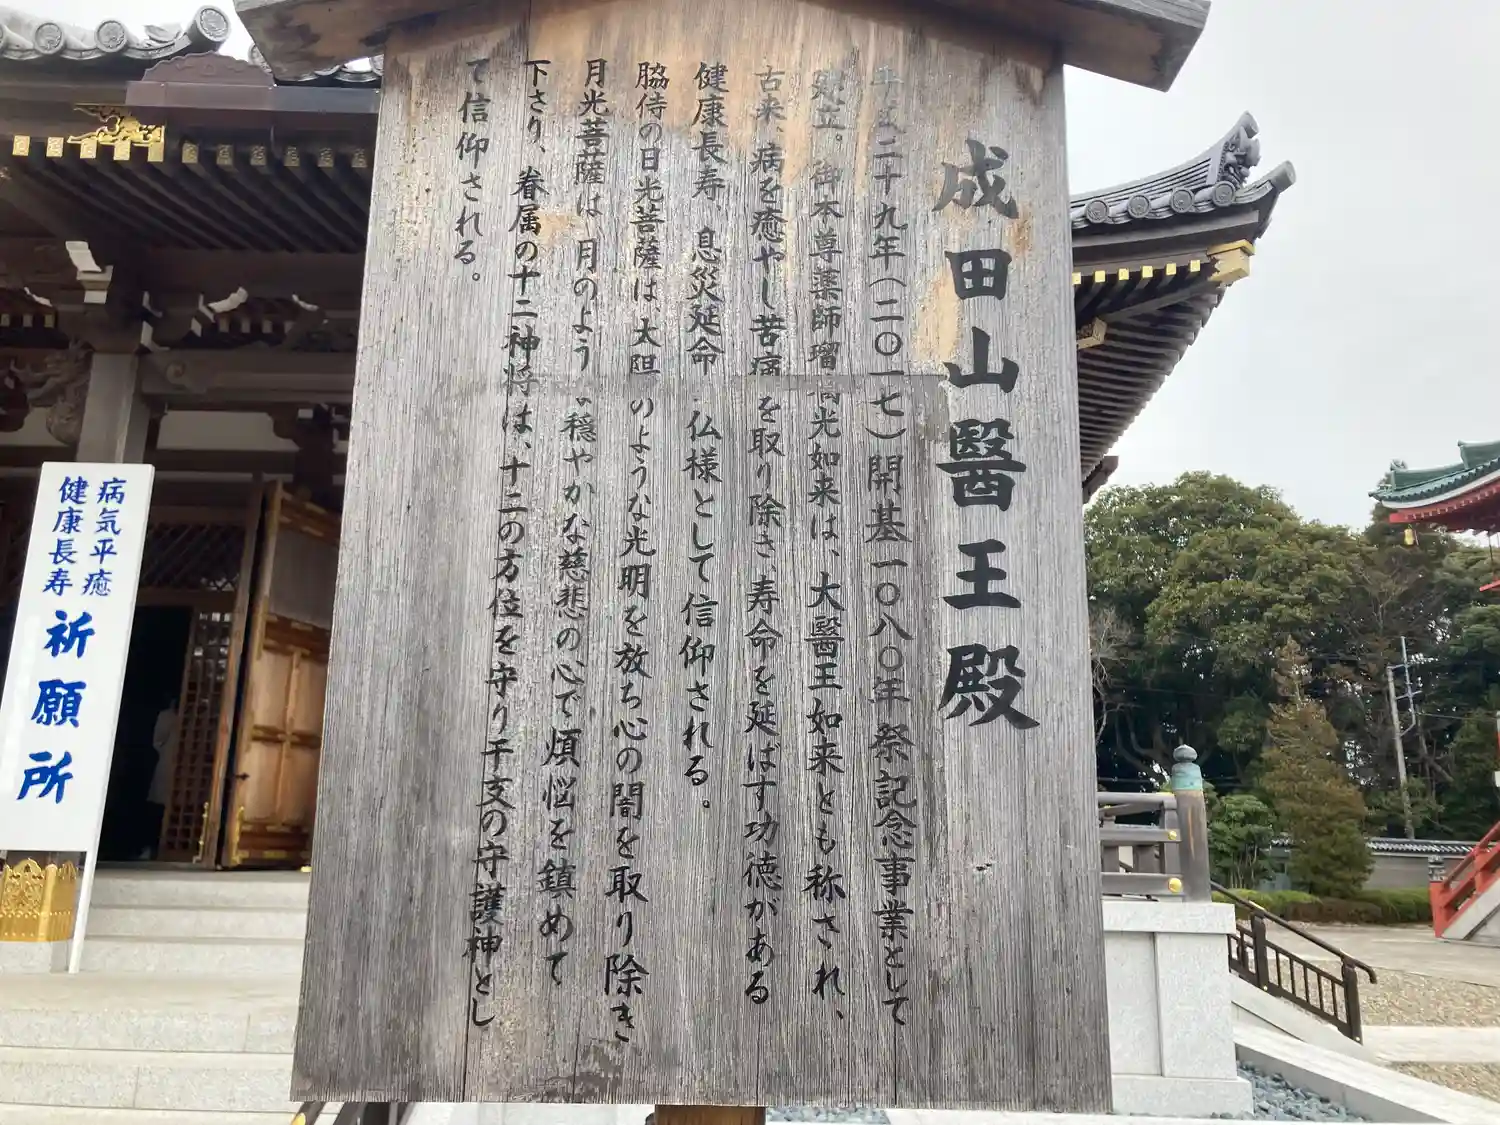 成田山醫王殿
平成二十九年（二〇一七）開基一〇八〇年祭記念事業として
建立。御本尊薬師瑠璃光如来は、大醫王如来とも称され、
古来、病を癒やし苦痛を取り除き、寿命を延ばす功徳がある
健康長寿、息災延命の仏様として信仰される。
脇侍の日光菩薩は、太陽のような光明を放ち心の闇を取り除き
月光菩薩は月のような穏やかな慈悲の心で煩悩を鎮めて
下さり、眷属の十二神将は、十二の方位を守り干支の守護神とし
て信仰される。
病気平癒
健康長寿
祈願所